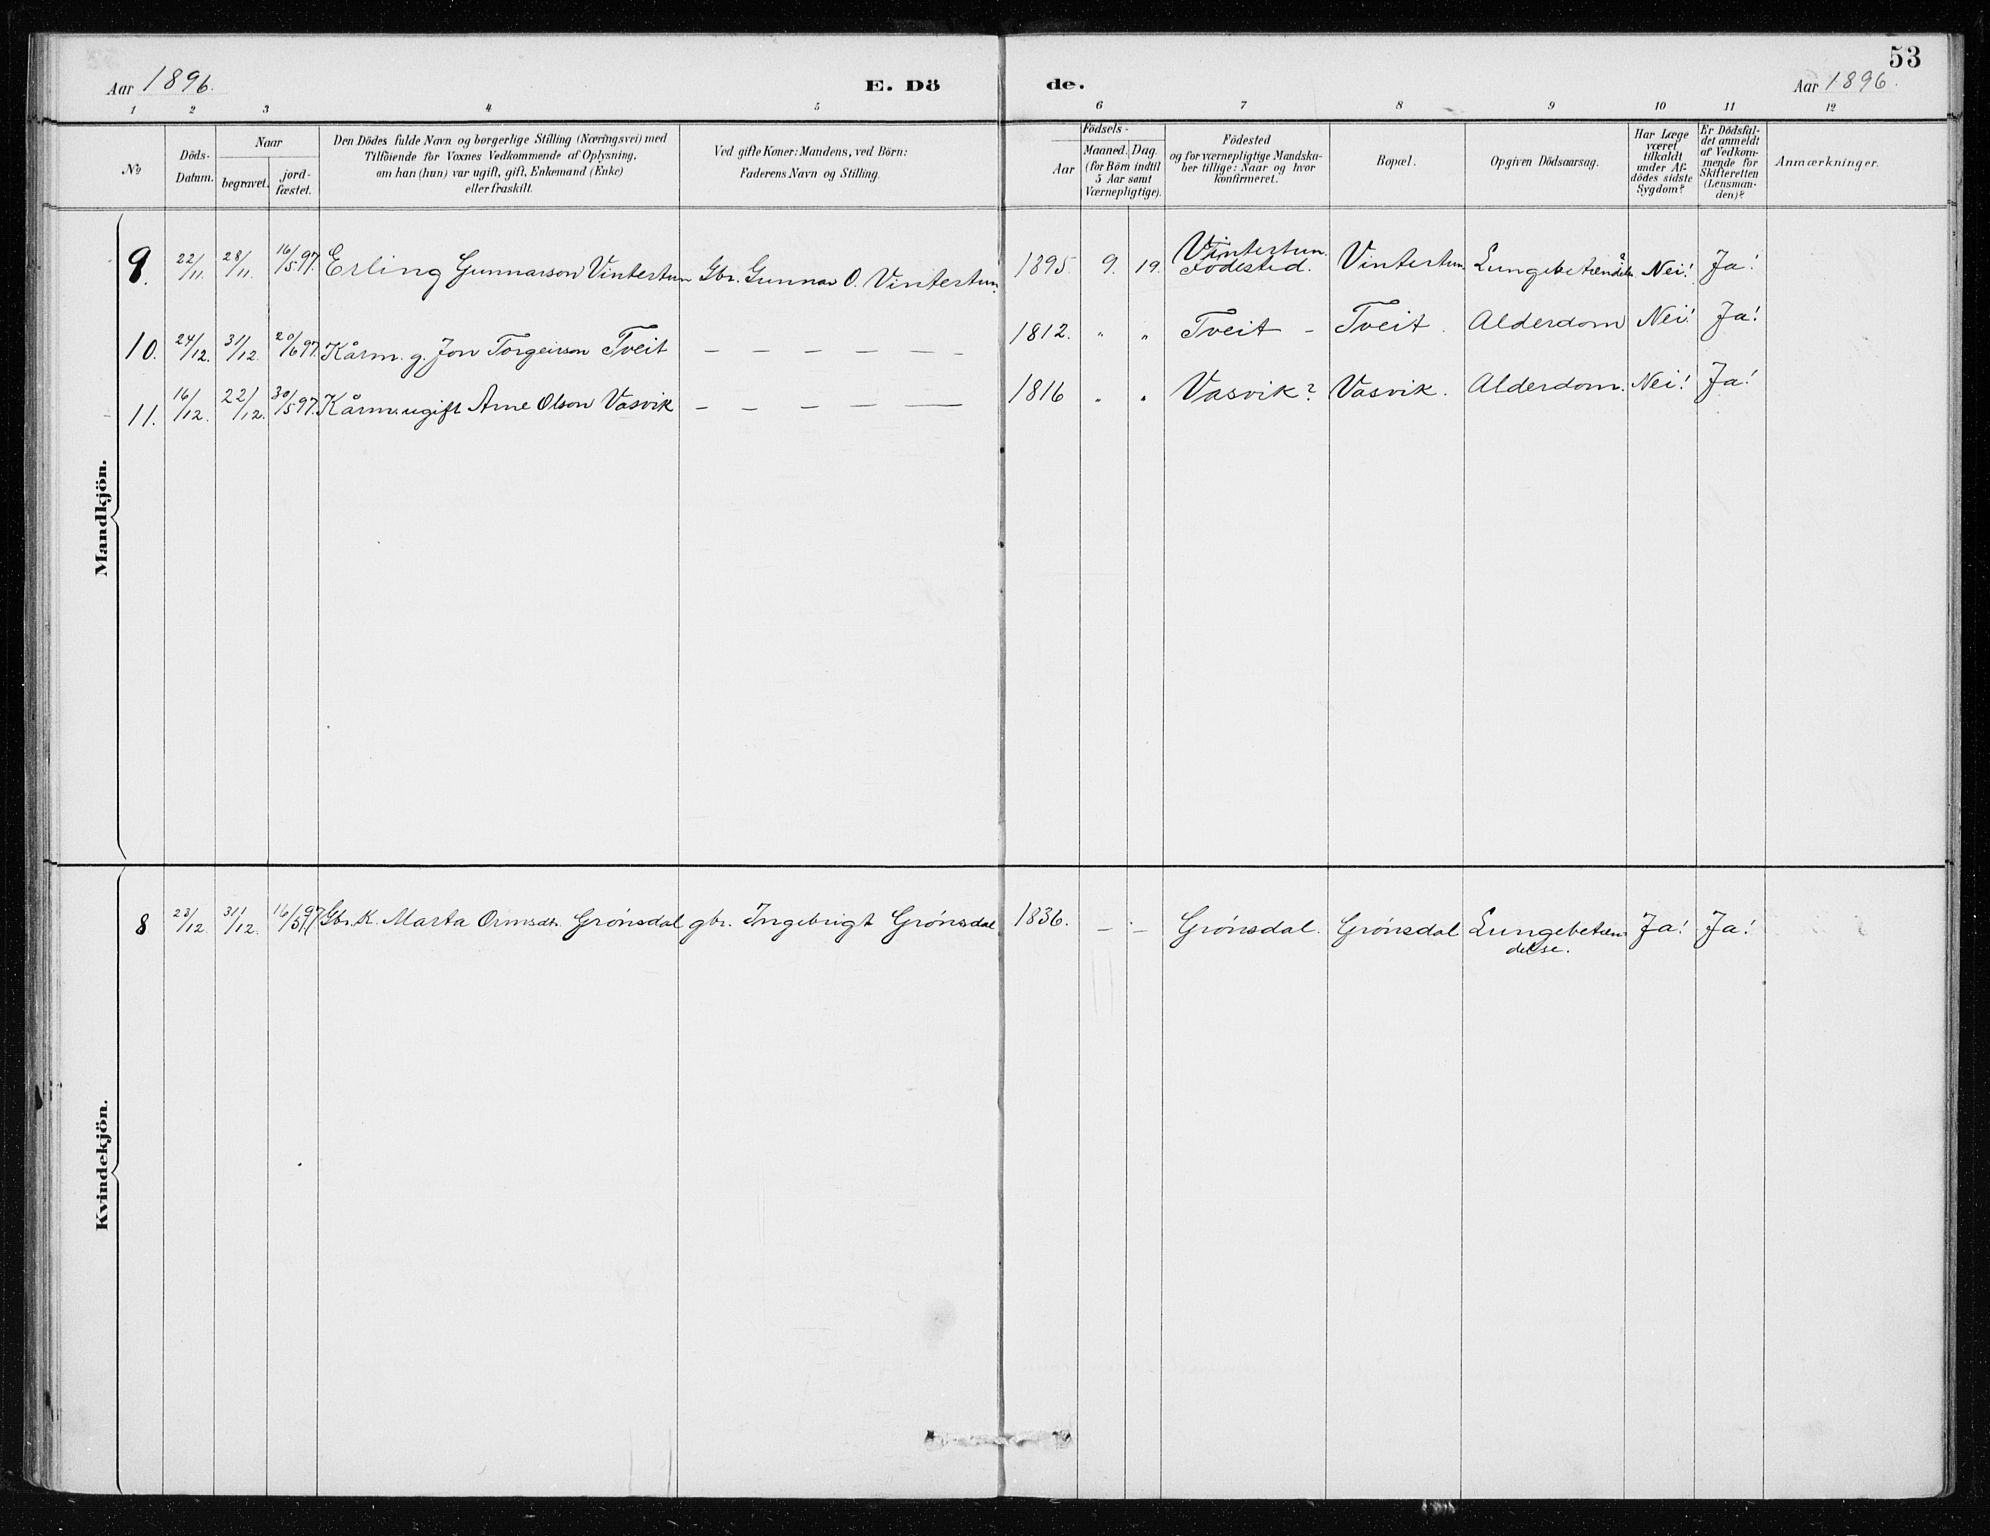 53
Aar 1896. E. Dö de. Aar 1896.
1 2 3 4 5 6 7 8 9 10 11 12
№
Döds-
Datum.
Naar
begravet.
jord-
fæstet.
Den Dödes fulde Navn og borgerlige Stilling (Næringsvei) med
Tilföiende for Voxnes Vedkommende af Oplysning,
om han (hun) var ugift, gift, Enkemand (Enke)
eller fraskilt.
Ved gifte Koner: Mandens, ved Börn:
Faderens Navn og Stilling.
Födsels-
Aar
Maaned. Dag.
(for Börn indtil
5 Aar samt
Værnepligtige).
Födested
og for værnepligtige Mandska-
ber tillige: Naar og hvor
konfirmeret.
Bopæl.
Opgiven Dödsaarsag.
Har Læge
været
tilkaldt
under Af-
dödes sidste
Sygdom?
Er Dödsfal-
det anmeldt
af Vedkom-
mende for
Skifteretten
(Lensman-
den)?
Anmærkninger.
Mandkjön.
9. 22/11. 28/11. 16/5 97. Erling Gunnarson Vintertun Gbr. Gunnar O. Vintertun. 1895. 9. 19. Vintertun. Födested. Vintertun. Lungebetændels? Nei! Ja!
10. 24/12. 31/12. 20/6 97. Kårm. g. Jon Torgeirson Tveit — — — — — — 1812. " " Tveit – Tveit. Alderdom Nei! Ja!
11. 16/12. 22/12. 30/5 97. Kårm. ugift Arne Olson Vasvik — — — — — 1816 " " Vasvik? Vasvik. Alderdom. Nei! Ja!
Kvindekjön.
8 23/12. 31/12. 16/5 97. Gbr. K. Marta Ormsdt. Grónsdal gbr. Ingebrigt Grónsdal 1836. — — Grónsdal. Grónsdal Lungebetæn Ja! Ja!
delse.